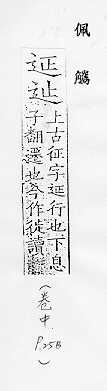 佩觿
上古征字延行也下息
子翻遷也今作徙讀
(卷中 P.25B)